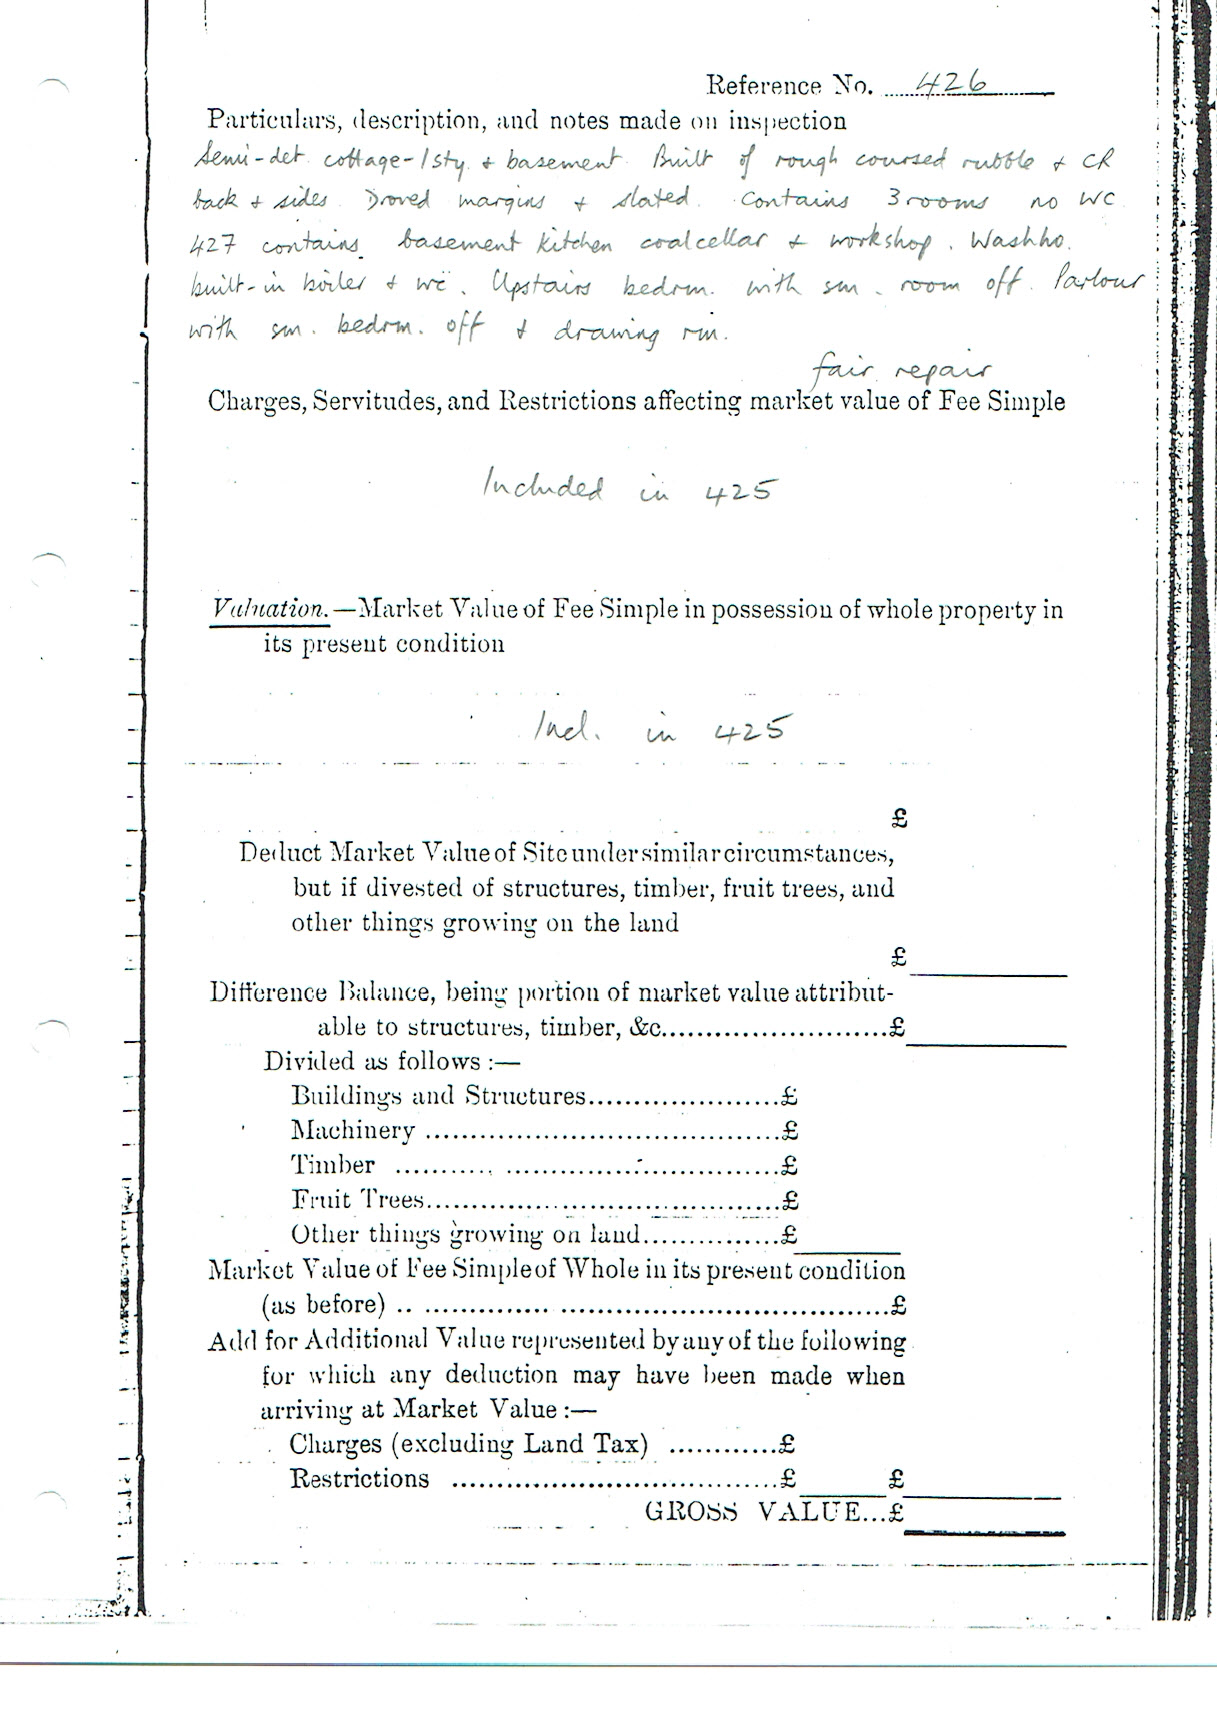 Reference No. 426
Particulars, description, and notes made on inspection
Semi-det. cottage - 1 sty. & basement. Built of rough coursed rubble & CR
back & sides. Droved margins & slated. Contains 3 rooms no WC
427 contains basement kitchen coalcellar & workshop. Washho.
built-in boiler & wc. Upstairs bedrm. with sm. room off. Parlour
with sm. bedrm. off & drawing rm.
fair repair
Charges, Servitudes, and Restrictions affecting market value of Fee Simple
Included in 425
Valuation.—Market Value of Fee Simple in possession of whole property in
its present condition
Incl. in 425
£
Deduct Market Value of Site under similar circumstances,
but if divested of structures, timber, fruit trees, and
other things growing on the land
£
Difference Balance, being portion of market value attribut-
able to structures, timber, &c.........................£
Divided as follows :—
Buildings and Structures.....................£
Machinery .......................................£
Timber ...........................................£
Fruit Trees.......................................£
Other things growing on land...............£
Market Value of Fee Simple of Whole in its present condition
(as before) .. ....................................................£
Add for Additional Value represented by any of the following
for which any deduction may have been made when
arriving at Market Value :—
Charges (excluding Land Tax) ............£
Restrictions ....................................£ £
GROSS VALUE...£